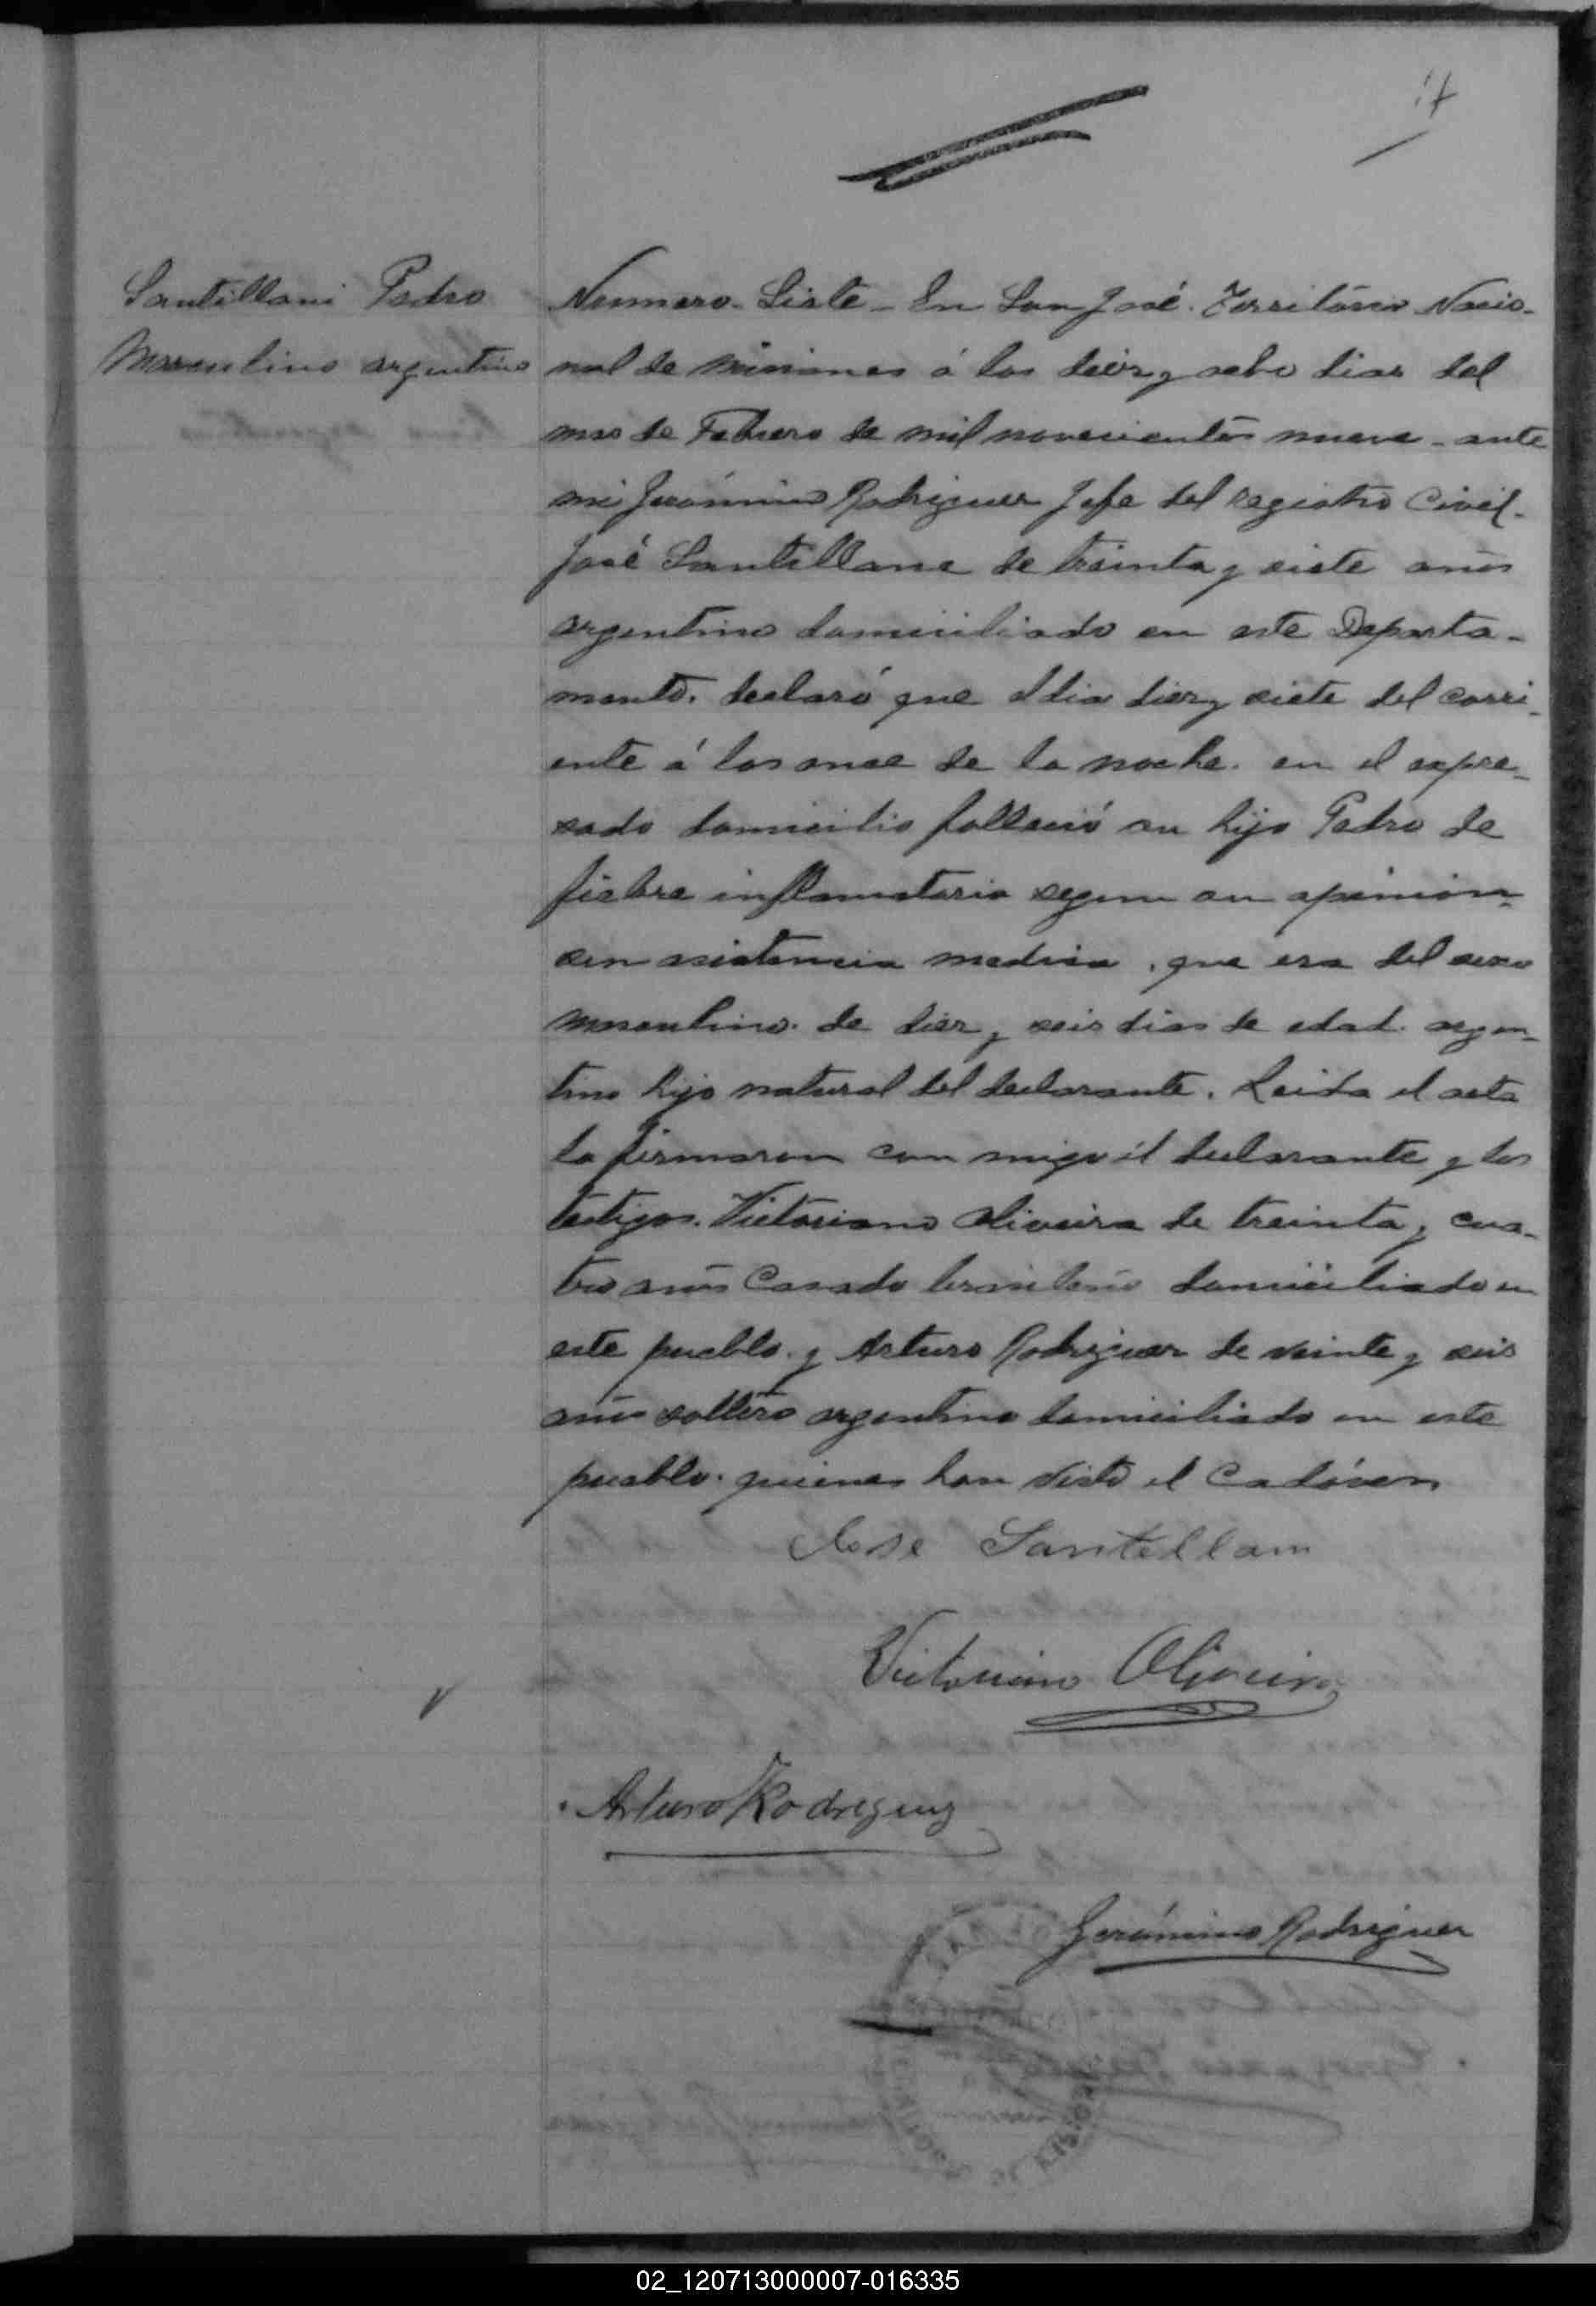 17
Santillani Pedro
Masculino argentino
Numero Siete - En San José. Território Nacio-
nal de Misiones á los diez y ocho dias del
mes de Febrero de mil novecientos nueve - ante
mi Jerónimo Rodriguez Jefe del registro Civil -
José Santillane de treinta y siete años
argentino domiciliado en este Departa-
mento. declaró que el dia diez y siete del corri-
ente á las once de la noche. en el expre-
sado domicilio falleció su hijo Pedro de
fiebre inflamatoria segun su opinion -
sin asistencia medica. que era del sexo
masculino. de diez y seis dias de edad. argen-
tino hijo natural del declarante. Leida el acta
la firmaron con migo el declarante y los
testigos. Victoriano Oliveira de treinta y cua-
tro años Casado brasilero domiciliado en
este pueblo. y Arturo Rodriguez de veinte y seis
años soltero argentino domiciliado en este
pueblo. quienes han visto el Cadáver
Jose Santellan
Victorian Oliveira
Arturo Rodreguez
Gerónimo Rodriguez
02_120713000007-016335